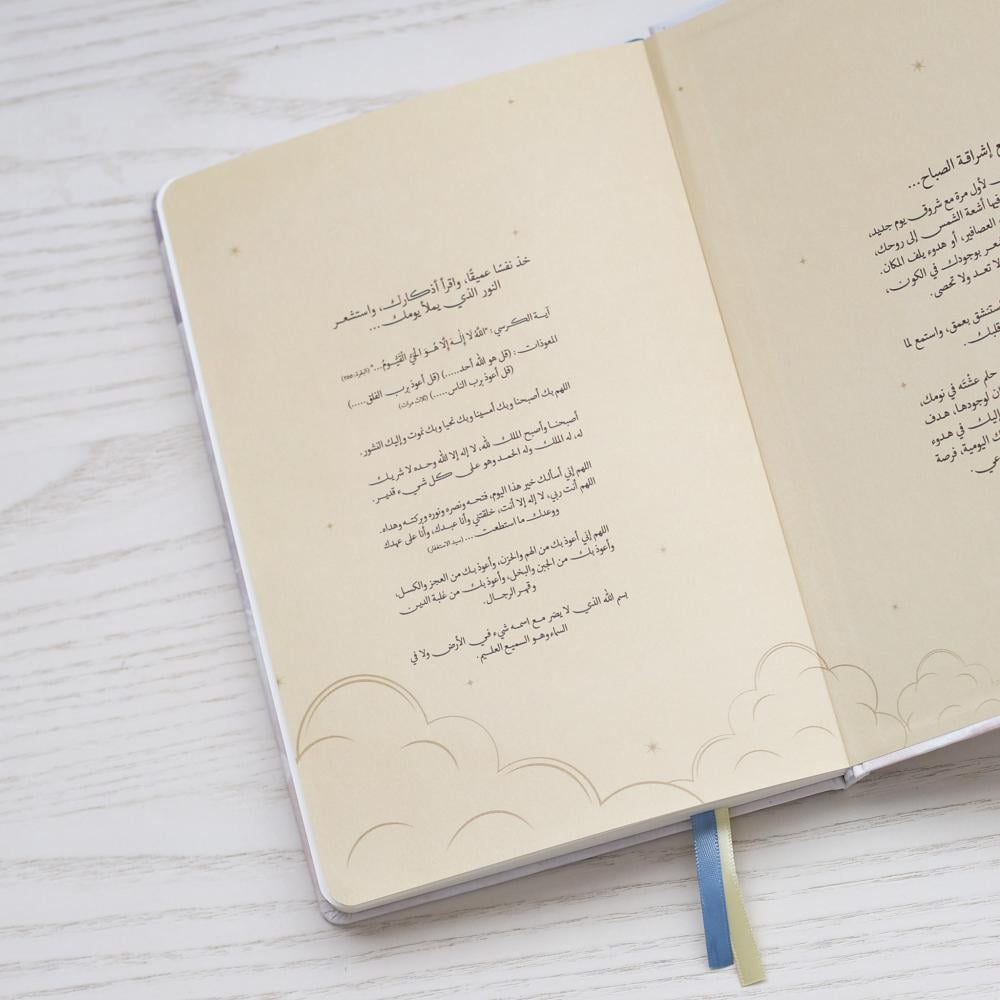 إشراقة الصباح...
لأول مرة مع شروق يوم جديد،
فيها أشعة الشمس إلى روحك،
العصافير، أو هدوء يلف المكان.
بوجودك في الكون،
لا تعد ولا تحصى.
بعمق، واستمع لما
حلم عشته في نومك،
لوجودها، هدف
إليك في هدوء
اليومية، فرصة
خذ نفسًا عميقًا، واقرأ أذكارك، واستشعر
النور الذي يملأ يومك...
آية الكرسي: "اللَّهُ لَا إِلَٰهَ إِلَّا هُوَ الْحَيُّ الْقَيُّومُ..." (البقرة: ٢٥٥)
المعوذات: (قل هو الله أحد.....) (قل أعوذ برب الفلق.....)
(قل أعوذ برب الناس.....) (ثلاث مرات)
اللهم بك أصبحنا وبك أمسينا وبك نحيا وبك نموت وإليك النشور.
أصبحنا وأصبح الملك لله، لا إله إلا الله وحده لا شريك
له، له الملك وله الحمد وهو على كل شيء قدير.
اللهم إني أسألك خير هذا اليوم، فتحه ونصره ونوره وبركته وهداه.
اللهم أنت ربي، لا إله إلا أنت، خلقتني وأنا عبدك، وأنا على عهدك
ووعدك ما استطعت... (سيد الاستغفار)
اللهم إني أعوذ بك من الهم والحزن، وأعوذ بك من العجز والكسل،
وأعوذ بك من الجبن والبخل، وأعوذ بك من غلبة الدين
وقهر الرجال.
بسم الله الذي لا يضر مع اسمه شيء في الأرض ولا في
السماء وهو السميع العليم.